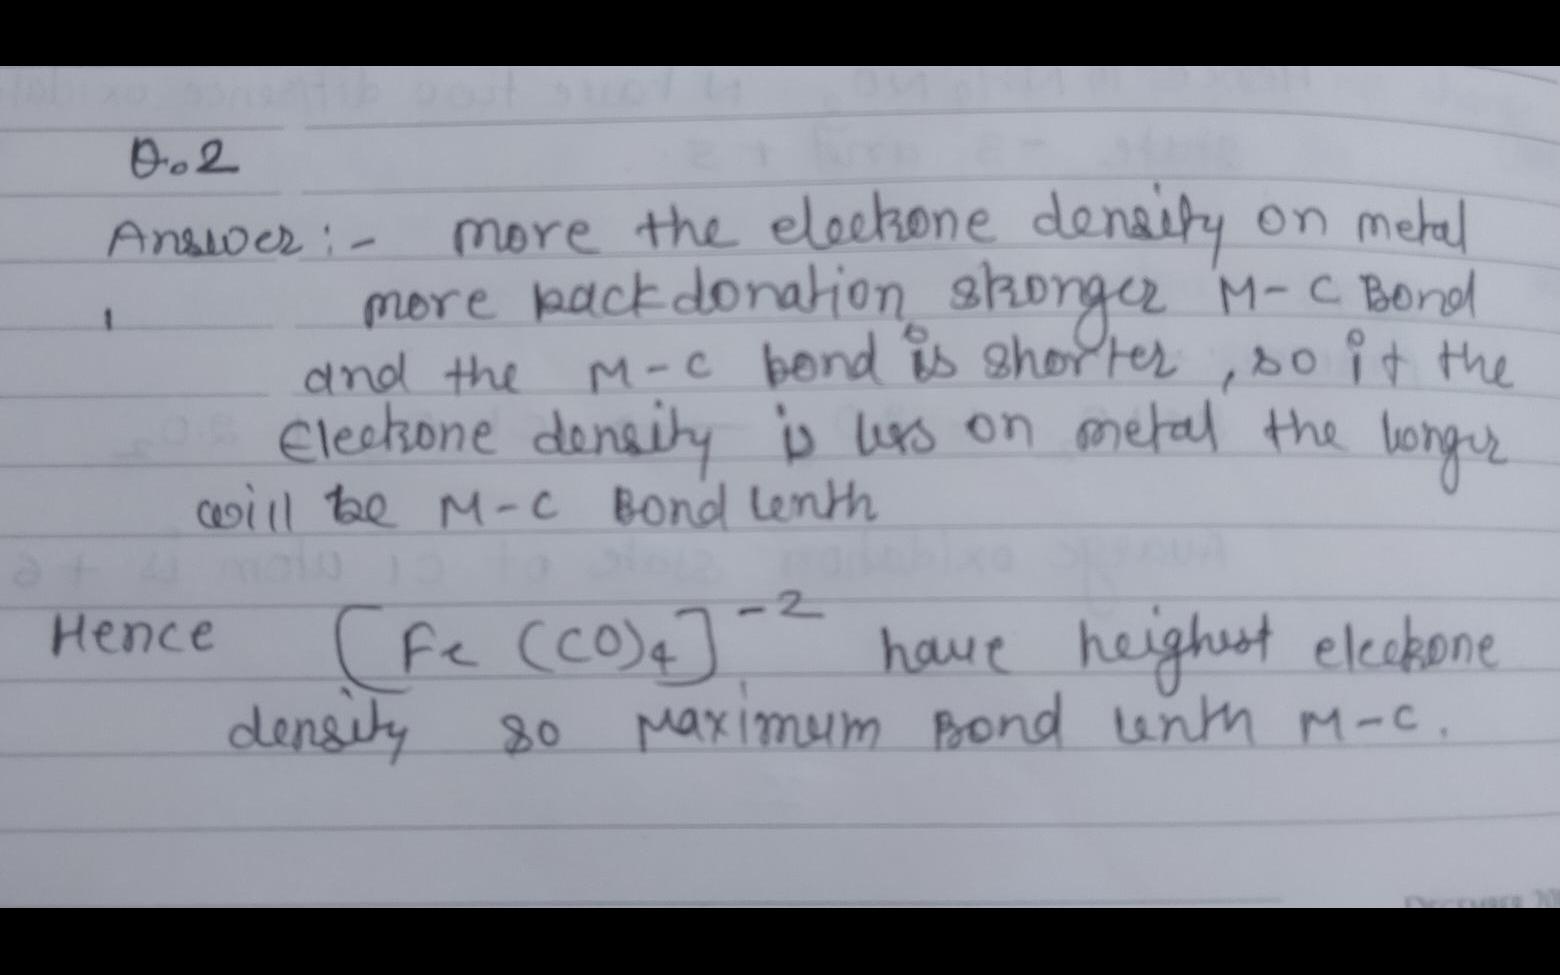 Q.2
Answer :- more the electrone density on metal
more backdonation stronger M-C Bond
and the M-C bond is shorter, so if the
Electrone density is less on metal the longer
will be M-C Bond lenth
Hence [Fe (CO)4]-2 have heighest electrone
density so Maximum Bond lenth M-C.